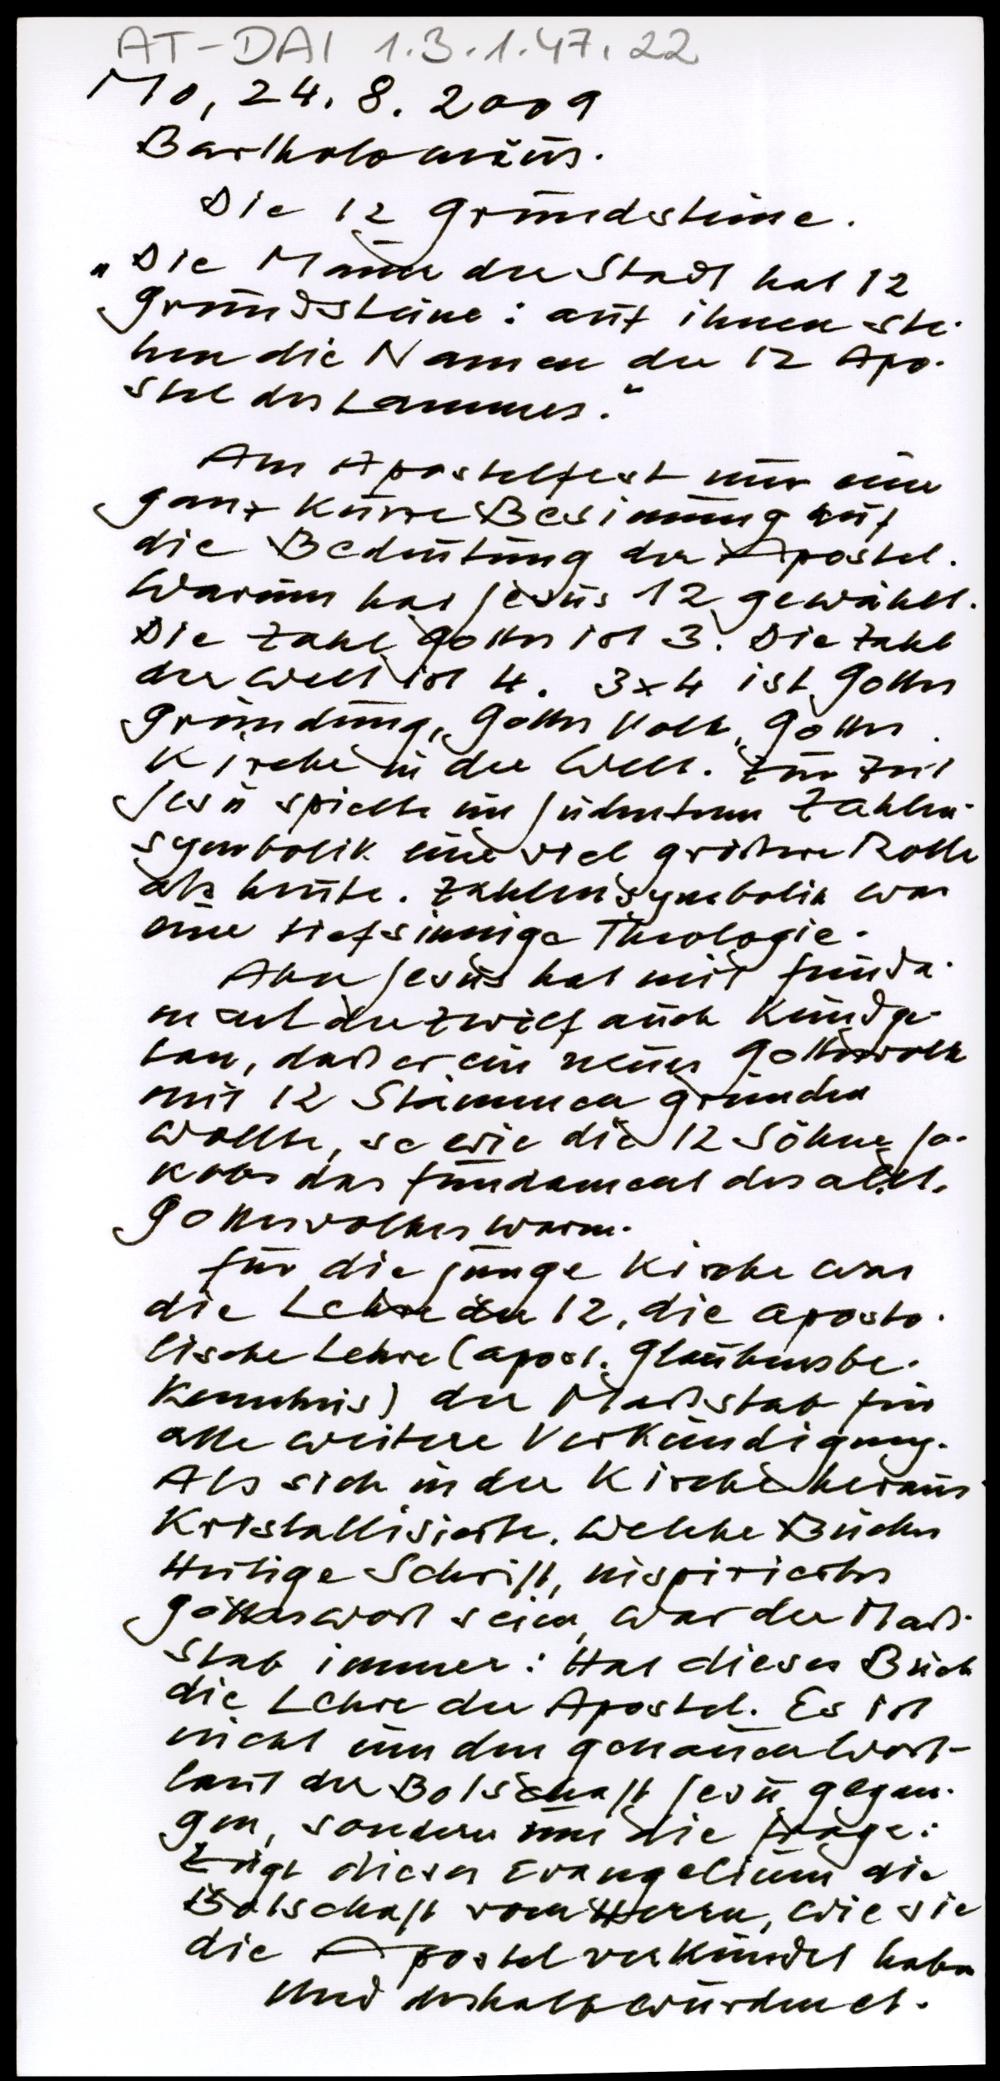 AT-DAI 1.3.1.47.22
Mo, 24. 8. 2009
Bartholomäus.
Die 12 Grundsteine.
"Die Mauer der Stadt hat 12
Grundsteine: auf ihnen ste-
hen die Namen der 12 Apo-
stel des Lammes."
Am Apostelfest nur eine
ganz kurze Besinnung auf
die Bedeutung der Apostel.
Warum hat Jesus 12 gewählt.
Die Zahl Gottes ist 3. Die Zahl
der Welt ist 4. 3x4 ist Gottes
Gründung, Gottes Volk, Gottes
Kirche in der Welt. Zur Zeit
Jesu spielte im Judentum Zahlen-
symbolik eine viel größere Rolle
als heute. Zahlensymbolik war
eine tiefsinnige Theologie.
Aber Jesus hat mit funda-
ment der Zwölf auch kundge-
tan, daß er ein neues Gottesvolk
mit 12 Stämmen gründen
wollte, so wie die 12 Söhne Ja-
kobs das Fundament des atl.
Gottesvolkes waren.
Für die junge Kirche war
die Lehre der 12, die aposto-
lische Lehre (apost. Glaubensbe-
kenntnis) der Maßstab für
alle weitere Verkündigung.
Als sich in der Kirche heraus
kristallisierte, welche Bücher
Heilige Schrift, inspiriertes
Gotteswort seien, war der Maß-
stab immer: Hat dieses Buch
die Lehre der Apostel. Es ist
nicht um den genauen Wort-
laut der Botschaft Jesu gegan-
gen, sondern um die Frage:
Zeigt dieses Evangelium die
Botschaft vom Herrn, wie sie
die Apostel verkündet haben
Und deshalb wurden et.